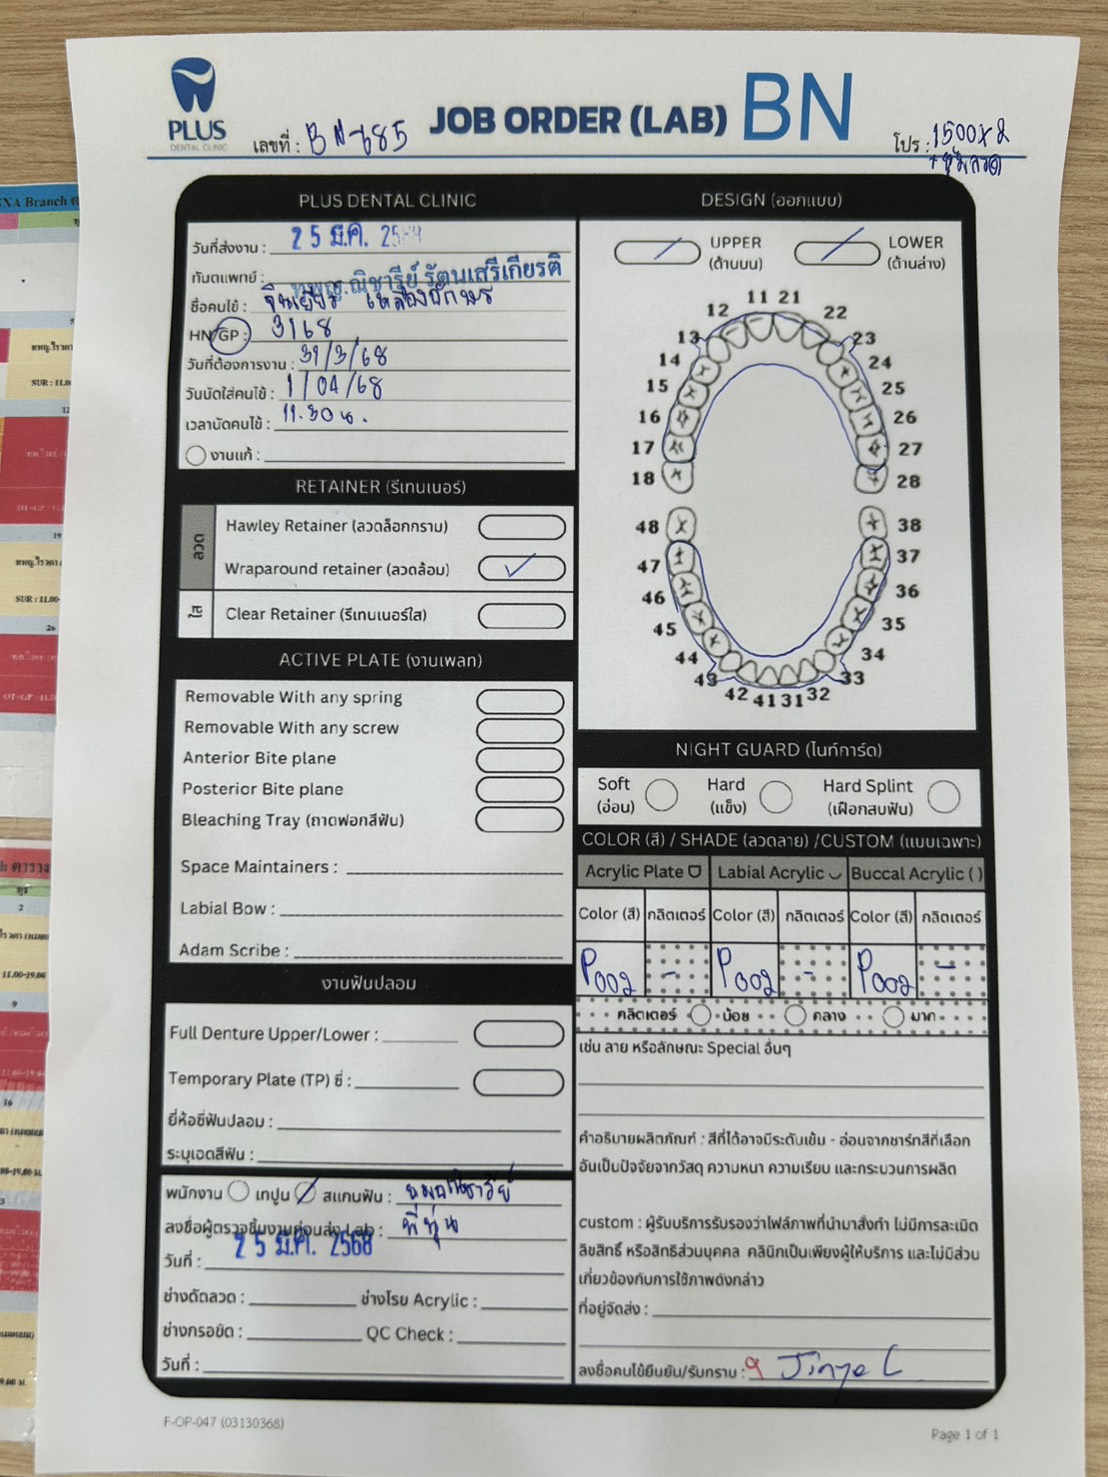 PLUS
DENTAL CLINIC
เลขที่ : BN-685
JOB ORDER (LAB) BN
โปร : 1500x2
PLUS DENTAL CLINIC
วันที่ส่งงาน : 25 มี.ค.
ทันตแพทย์ : ทพญ.ณิชารีย์ รัตนเสรีเกียรติ
ชื่อคนไข้ :
HN/GP : 3168
วันที่ต้องการงาน : 31/3/68
วันนัดใส่คนไข้ : 1/04/68
เวลานัดคนไข้ : 11.30 น.
งานแก้ :
RETAINER (รีเทนเนอร์)
ลวด
Hawley Retainer (ลวดล็อกกราม)
Wraparound retainer (ลวดล้อม)
ใส
Clear Retainer (รีเทนเนอร์ใส)
ACTIVE PLATE (งานเพลท)
Removable With any spring
Removable With any screw
Anterior Bite plane
Posterior Bite plane
Bleaching Tray (ถาดฟอกสีฟัน)
Space Maintainers :
Labial Bow :
Adam Scribe :
งานฟันปลอม
Full Denture Upper/Lower :
Temporary Plate (TP) ซี่ :
ยี่ห้อซี่ฟันปลอม :
ระบุเฉดสีฟัน :
พนักงาน เทปูน สแกนฟัน :
ลงชื่อผู้ตรวจชิ้นงานก่อนส่ง Lab : พี่ทุ่น
วันที่ : 25 มี.ค. 2568
ช่างดัดลวด : ช่างโรย Acrylic :
ช่างกรอขัด : QC Check :
วันที่ :
DESIGN (ออกแบบ)
UPPER
(ด้านบน)
LOWER
(ด้านล่าง)
11 21
12 22
13 23
14 24
15 25
16 26
17 27
18 28
48 38
47 37
46 36
45 35
44 34
43 33
42 41 31 32
NIGHT GUARD (ไนท์การ์ด)
Soft
(อ่อน)
Hard
(แข็ง)
Hard Splint
(เฝือกสบฟัน)
COLOR (สี) / SHADE (ลวดลาย) /CUSTOM (แบบเฉพาะ)
Acrylic Plate Labial Acrylic Buccal Acrylic ( )
Color (สี) กลิตเตอร์ Color (สี) กลิตเตอร์ Color (สี) กลิตเตอร์
P002 - P002 - P002 -
กลิตเตอร์ น้อย กลาง มาก
เช่น ลาย หรือลักษณะ Special อื่นๆ
คำอธิบายผลิตภัณฑ์ : สีที่ได้อาจมีระดับเข้ม - อ่อนจากชาร์ทสีที่เลือก
อันเป็นปัจจัยจากวัสดุ ความหนา ความเรียบ และกระบวนการผลิต
custom : ผู้รับบริการรับรองว่าไฟล์ภาพที่นำมาสั่งทำ ไม่มีการละเมิด
ลิขสิทธิ์ หรือสิทธิส่วนบุคคล คลินิกเป็นเพียงผู้ให้บริการ และไม่มีส่วน
เกี่ยวข้องกับการใช้ภาพดังกล่าว
ที่อยู่จัดส่ง :
ลงชื่อคนไข้ยืนยัน/รับทราบ :
F-OP-047 (03130368)
Page 1 of 1